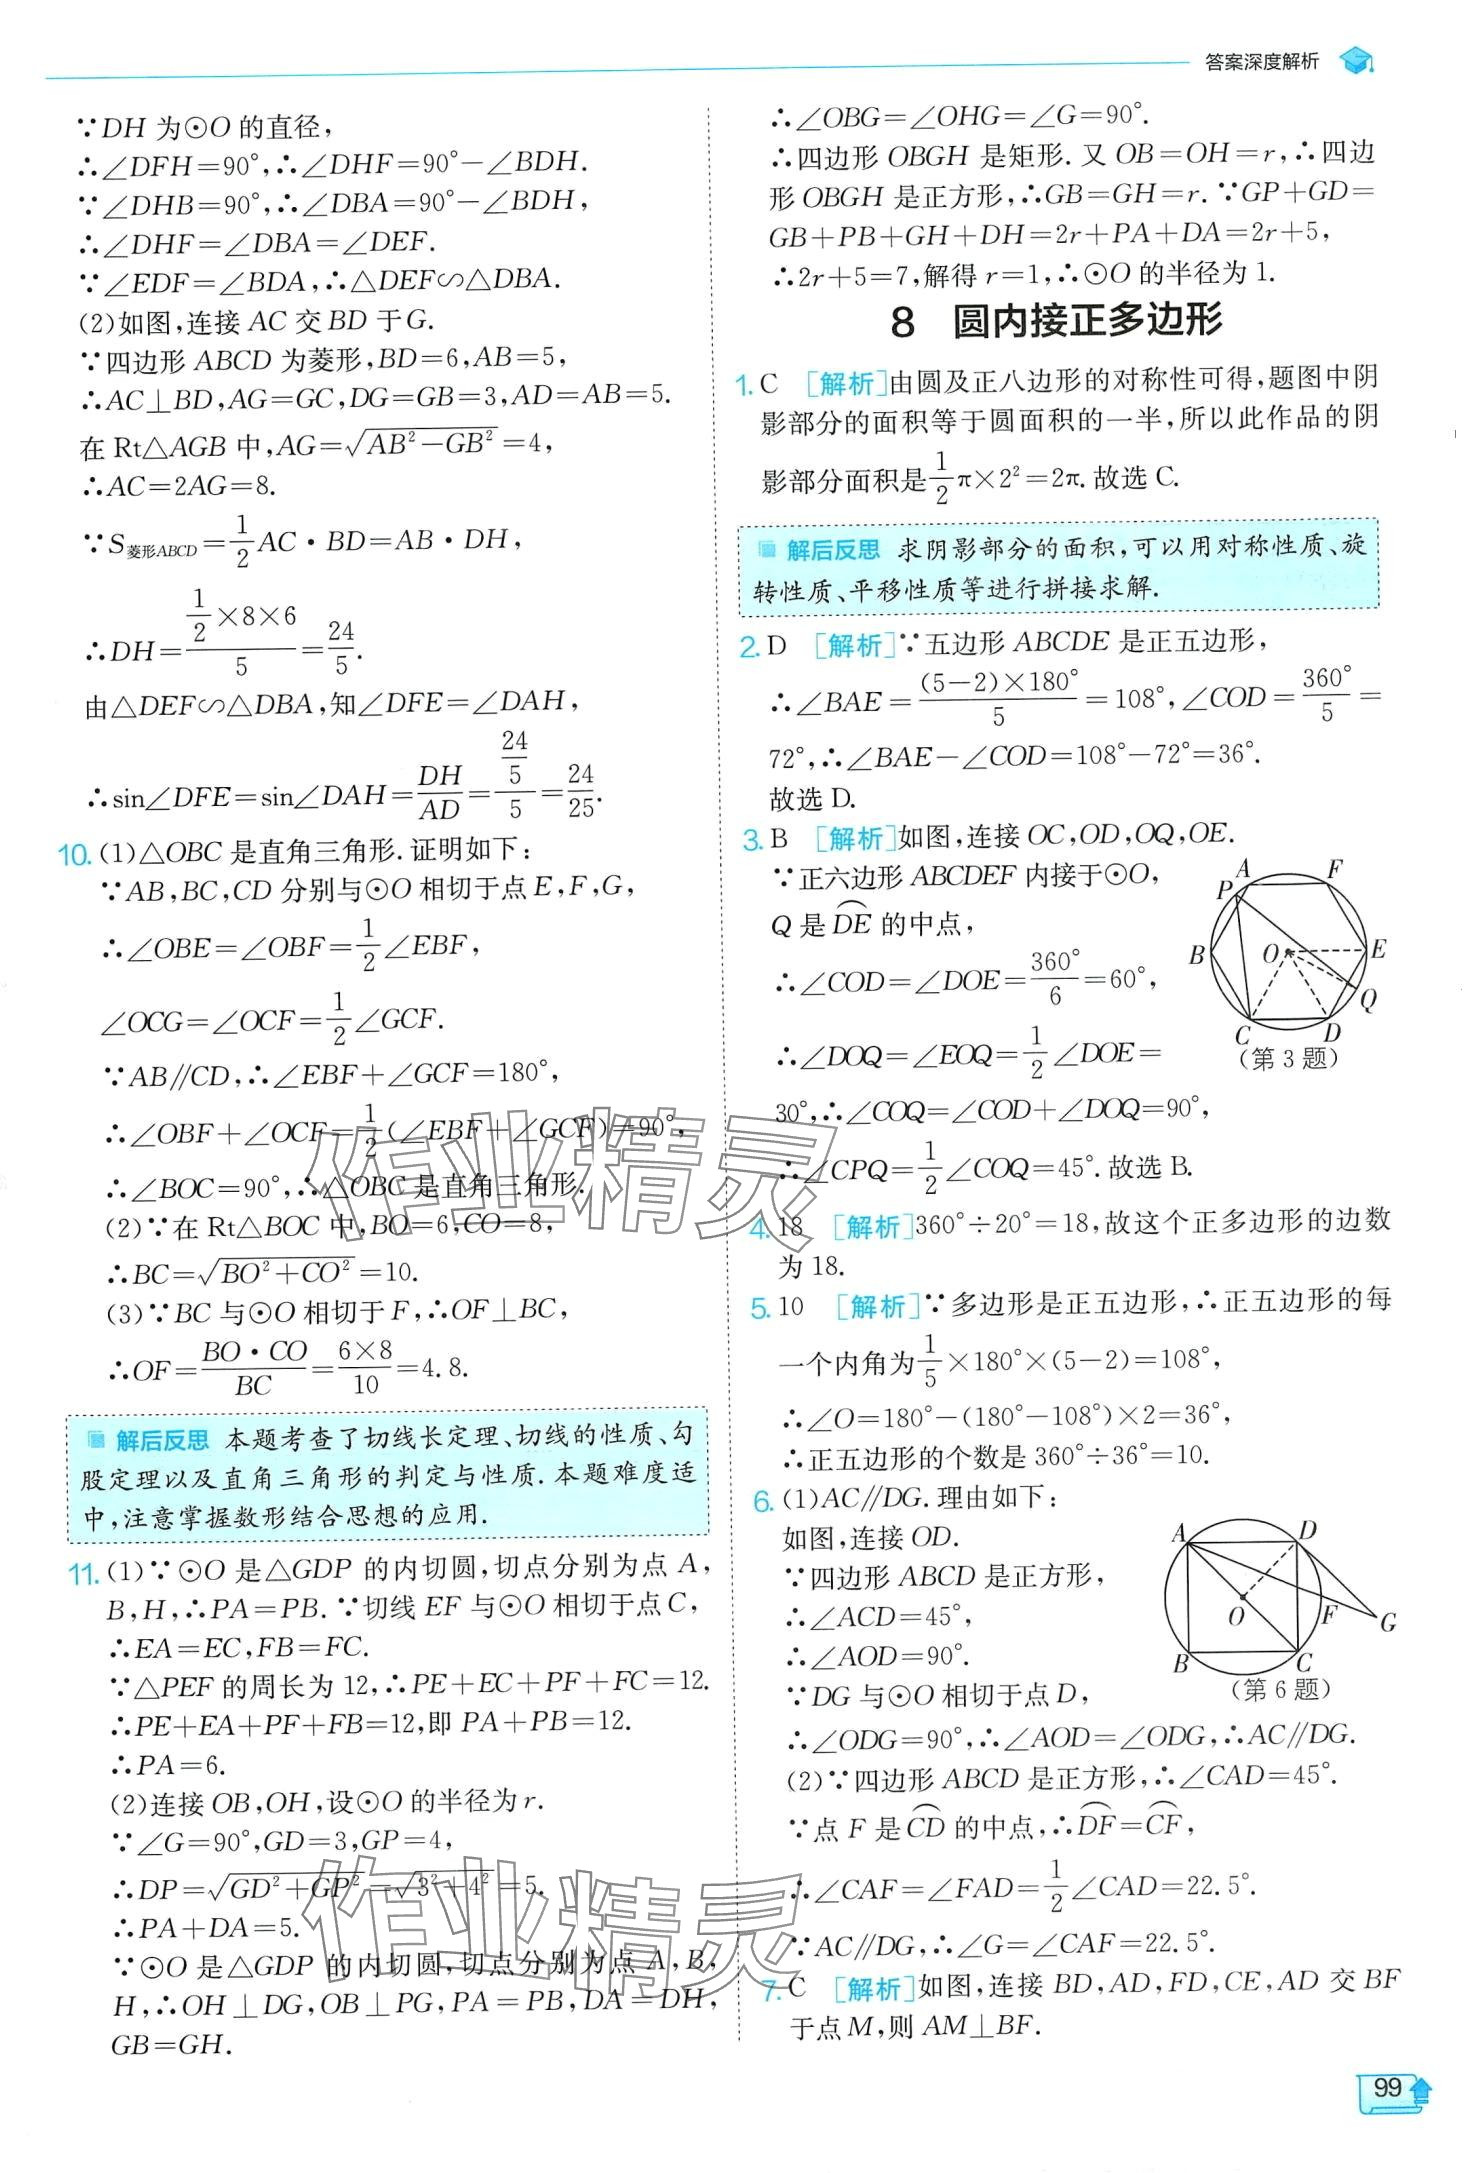 答案深度解析
∵DH 为⊙O 的直径,
∴∠DFH=90°,∴∠DHF=90°-∠BDH.
∵∠DHB=90°,∴∠DBA=90°-∠BDH,
∴∠DHF=∠DBA=∠DEF.
∵∠EDF=∠BDA,∴△DEF∽△DBA.
(2)如图,连接 AC 交 BD 于G.
∵四边形 ABCD 为菱形,BD=6,AB=5,
∴AC⊥BD,AG=GC,DG=GB=3,AD=AB=5.
在 Rt△AGB 中,AG=√(AB²-GB²)=4,
∴AC=2AG=8.
∵S菱形ABCD=1/2 AC·BD=AB·DH,
∴DH=(1/2×8×6)/5=24/5.
由△DEF∽△DBA,知∠DFE=∠DAH,
∴sin∠DFE=sin∠DAH=DH/AD=(24/5)/5=24/25.
10. (1)△OBC 是直角三角形.证明如下:
∵AB,BC,CD 分别与⊙O 相切于点 E,F,G,
∴∠OBE=∠OBF=1/2∠EBF,
∠OCG=∠OCF=1/2∠GCF.
∵AB∥CD,∴∠EBF+∠GCF=180°,
∴∠OBF+∠OCF=1/2(∠EBF+∠GCF)=90°,
∴∠BOC=90°,∴△OBC 是直角三角形.
(2)∵在 Rt△BOC 中,BO=6,CO=8,
∴BC=√(BO²+CO²)=10.
(3)∵BC 与⊙O 相切于 F,∴OF⊥BC,
∴OF=BO·CO/BC=6×8/10=4.8.
解后反思 本题考查了切线长定理、切线的性质、勾
股定理以及直角三角形的判定与性质.本题难度适
中,注意掌握数形结合思想的应用.
11. (1)∵⊙O 是△GDP 的内切圆,切点分别为点 A,
B,H,∴PA=PB.∵切线 EF 与⊙O 相切于点C,
∴EA=EC,FB=FC.
∵△PEF 的周长为 12,∴PE+EC+PF+FC=12.
∴PE+EA+PF+FB=12,即 PA+PB=12.
∴PA=6.
(2)连接 OB,OH,设⊙O 的半径为 r.
∵∠G=90°,GD=3,GP=4,
∴DP=√(GD²+GP²)=√(3²+4²)=5.
∴PA+DA=5.
∵⊙O 是△GDP 的内切圆,切点分别为点 A,B,
H,∴OH⊥DG,OB⊥PG,PA=PB,DA=DH,
GB=GH.
∴∠OBG=∠OHG=∠G=90°.
∴四边形 OBGH 是矩形.又 OB=OH=r,∴四边
形 OBGH 是正方形,∴GB=GH=r.∵GP+GD=
GB+PB+GH+DH=2r+PA+DA=2r+5,
∴2r+5=7,解得 r=1,∴⊙O 的半径为 1.
8 圆内接正多边形
1. C [解析]由圆及正八边形的对称性可得,题图中阴
影部分的面积等于圆面积的一半,所以此作品的阴
影部分面积是1/2π×2²=2π.故选 C.
解后反思 求阴影部分的面积,可以用对称性质、旋
转性质、平移性质等进行拼接求解.
2. D [解析]∵五边形 ABCDE 是正五边形,
∴∠BAE=(5-2)×180°/5=108°,∠COD=360°/5=
72°,∴∠BAE-∠COD=108°-72°=36°.
故选 D.
3. B [解析]如图,连接 OC,OD,OQ,OE.
∵正六边形 ABCDEF 内接于⊙O,
Q 是 D͡E 的中点,
∴∠COD=∠DOE=360°/6=60°,
∴∠DOQ=∠EOQ=1/2∠DOE=
30°,∴∠COQ=∠COD+∠DOQ=90°,
∴∠CPQ=1/2∠COQ=45°.故选 B.
A F P B O E Q C D
(第 3 题)
4. 18 [解析]360°÷20°=18,故这个正多边形的边数
为 18.
5. 10 [解析]∵多边形是正五边形,∴正五边形的每
一个内角为1/5×180°×(5-2)=108°,
∴∠O=180°-(180°-108°)×2=36°,
∴正五边形的个数是 360°÷36°=10.
6. (1)AC∥DG.理由如下:
如图,连接 OD.
∵四边形 ABCD 是正方形,
∴∠ACD=45°,
∴∠AOD=90°.
∵DG 与⊙O 相切于点 D,
∴∠ODG=90°,∴∠AOD=∠ODG,∴AC∥DG.
A D O F G B C
(第 6 题)
(2)∵四边形 ABCD 是正方形,∴∠CAD=45°.
∵点 F 是 C͡D 的中点,∴D͡F=C͡F,
∴∠CAF=∠FAD=1/2∠CAD=22.5°.
∵AC∥DG,∴∠G=∠CAF=22.5°.
7. C [解析]如图,连接 BD,AD,FD,CE,AD 交 BF
于点 M,则 AM⊥BF.
99
作业精灵
作业精灵